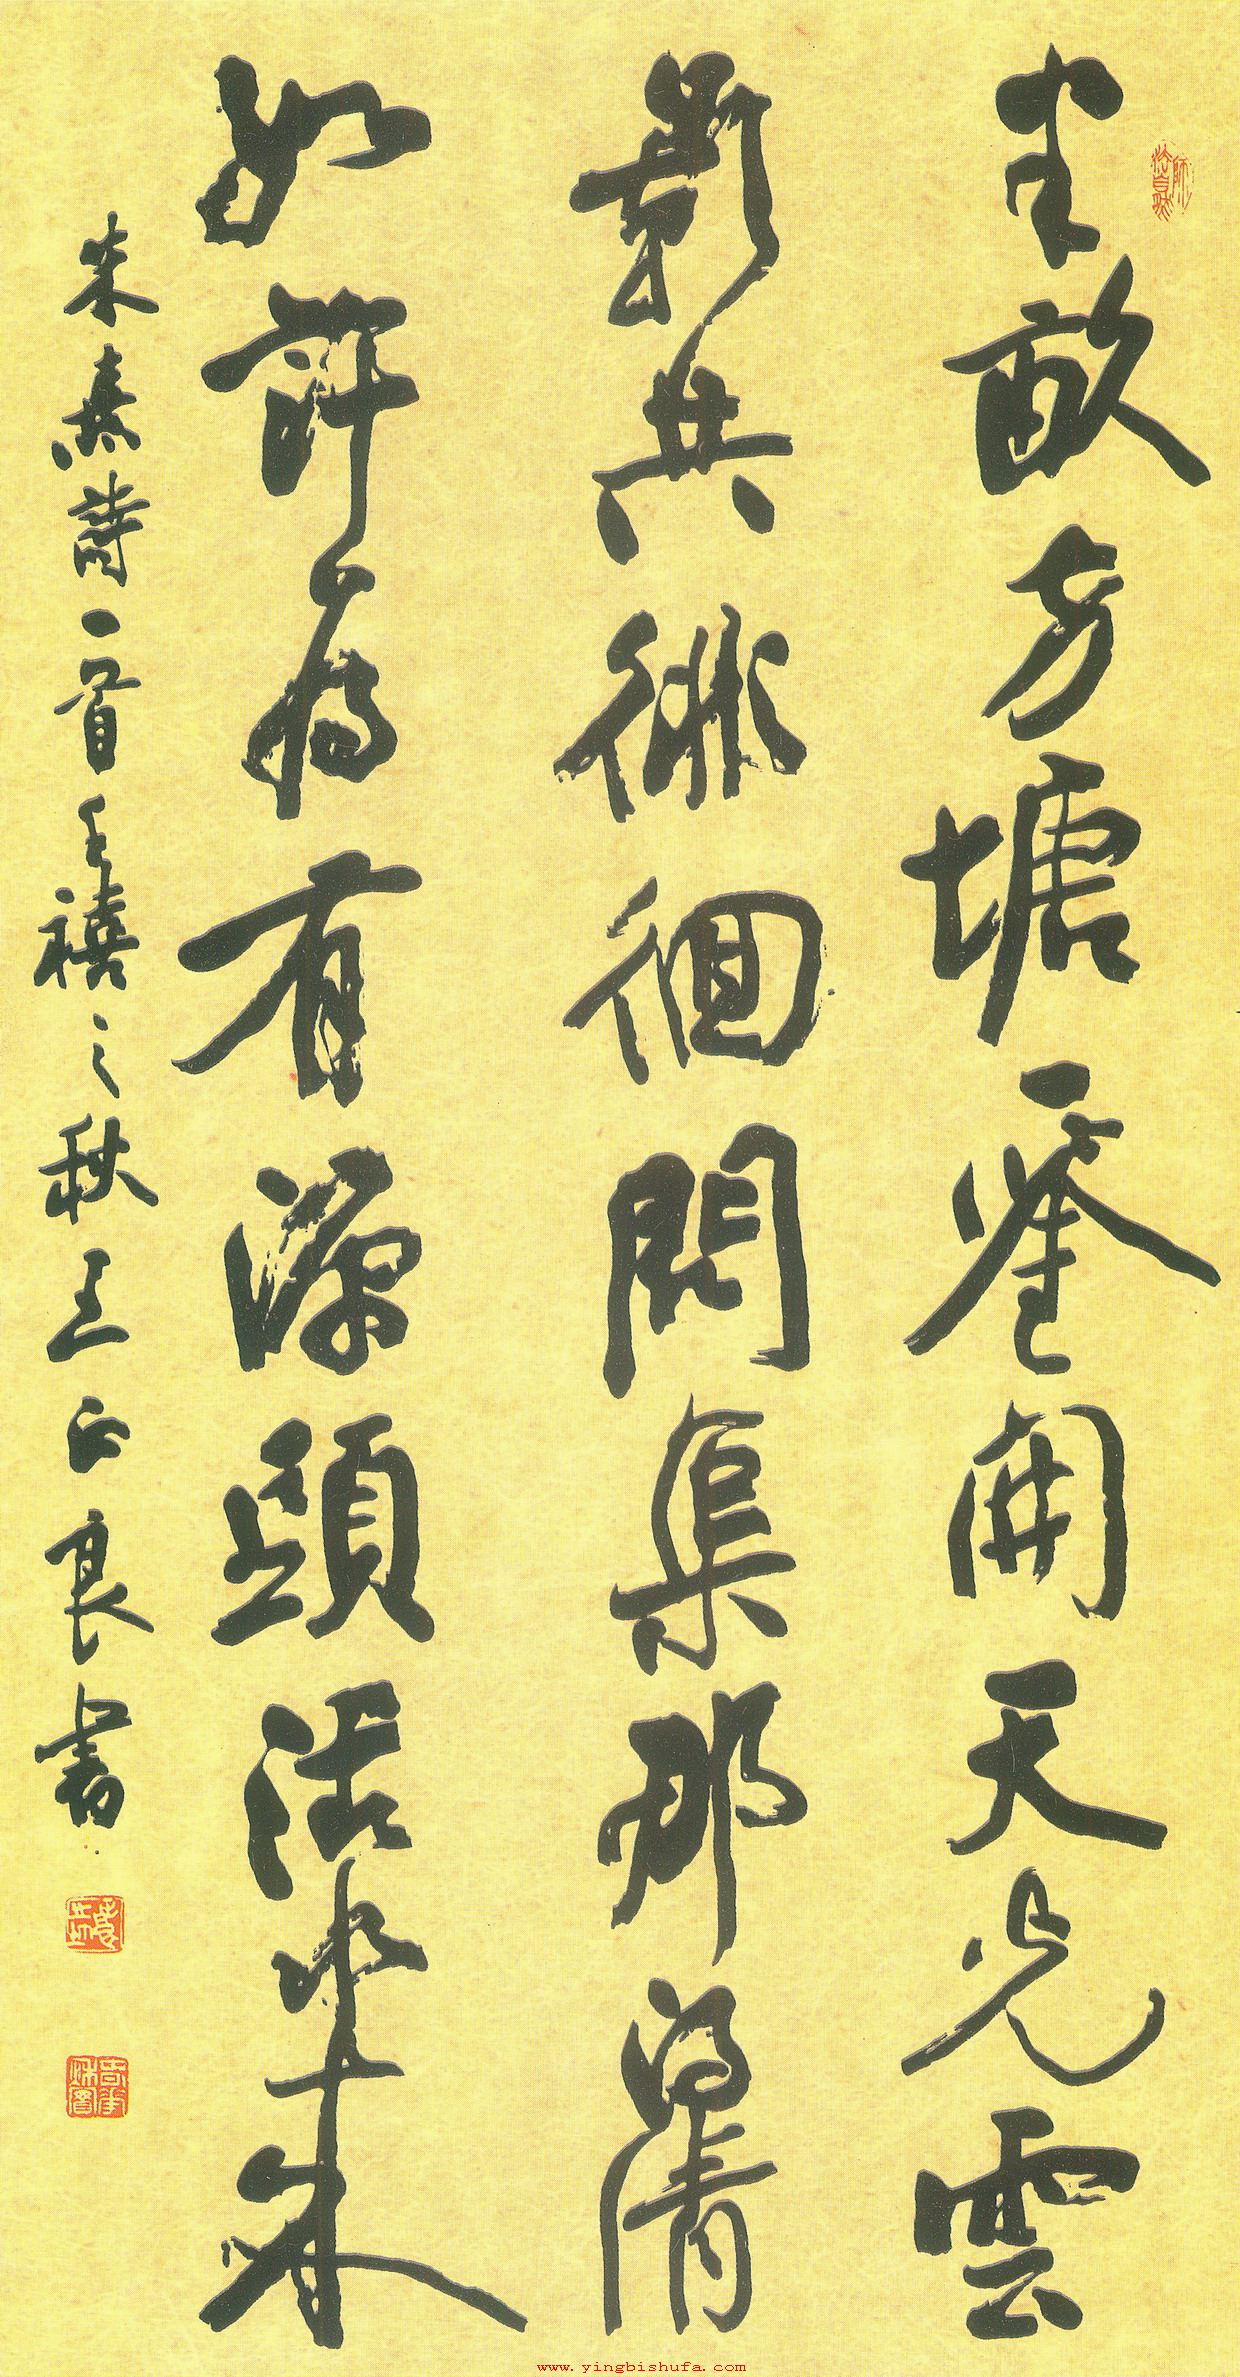 半畝方塘一鑒開天光雲
影共徘徊問渠那得清
如許為有源頭活水來
朱熹詩一首千禧之秋王正良書
www.yingbishufa.com